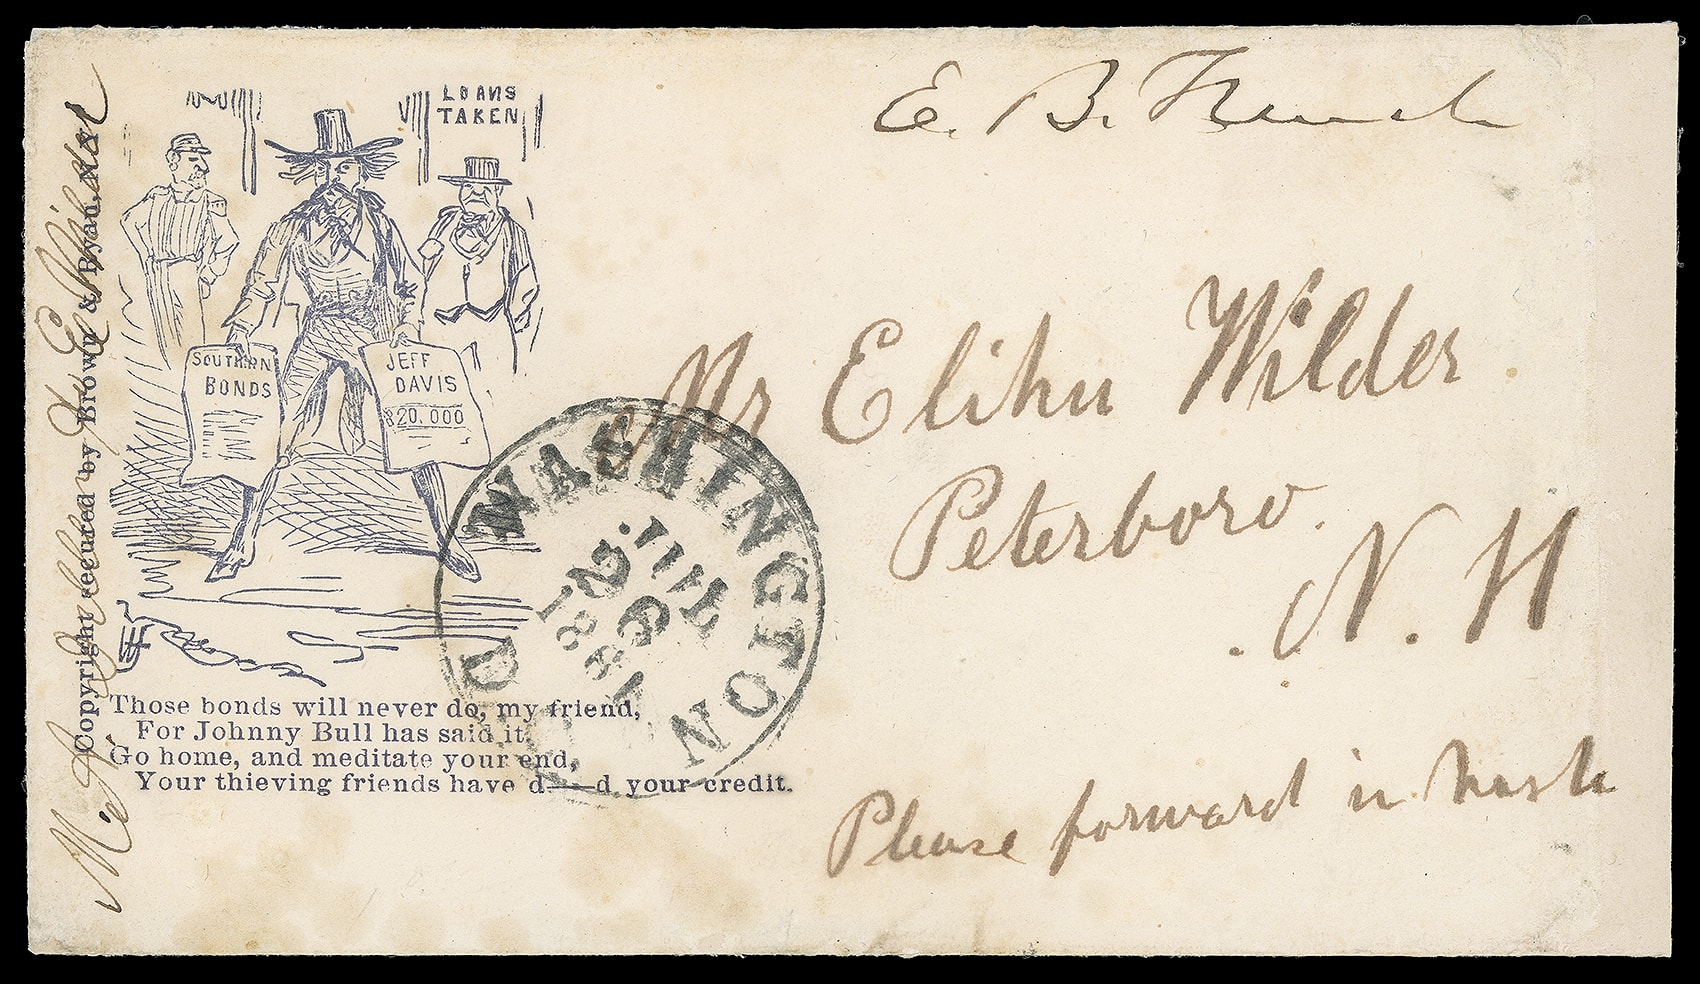 E. B. French
LOANS
TAKEN
SOUTHRN
BONDS
JEFF
DAVIS
$20,000
Copyright secured by Brown & Ryan, N.Y.
Mr Elihu Wilder
Peterboro.
N. H
WASHINGTON D
JUL
Those bonds will never do, my friend,
For Johnny Bull has said it,
Go home, and meditate your end,
Your thieving friends have d——d your credit.
Please forward in hash